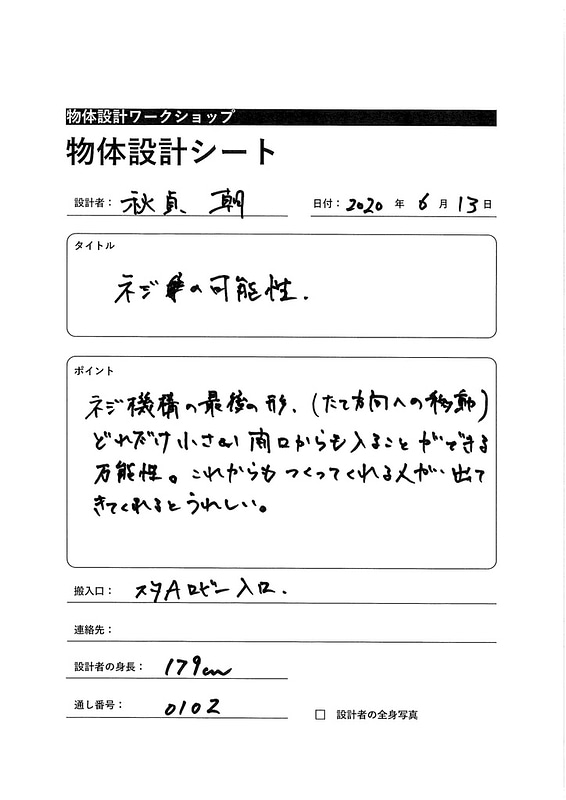 物体設計ワークショップ
物体設計シート
設計者： 秋貞 朝
日付： 2020 年 6 月 13 日
タイトル
ネジの可能性.
ポイント
ネジ機構の最後の形.(たて方向への移動)
どれだけ小さい開口からも入ることができる
万能性。これからもつくってくれる人が出て
きてくれるとうれしい。
搬入口： スタAロビー入口.
連絡先：
設計者の身長： 179cm
通し番号： 0102
□ 設計者の全身写真